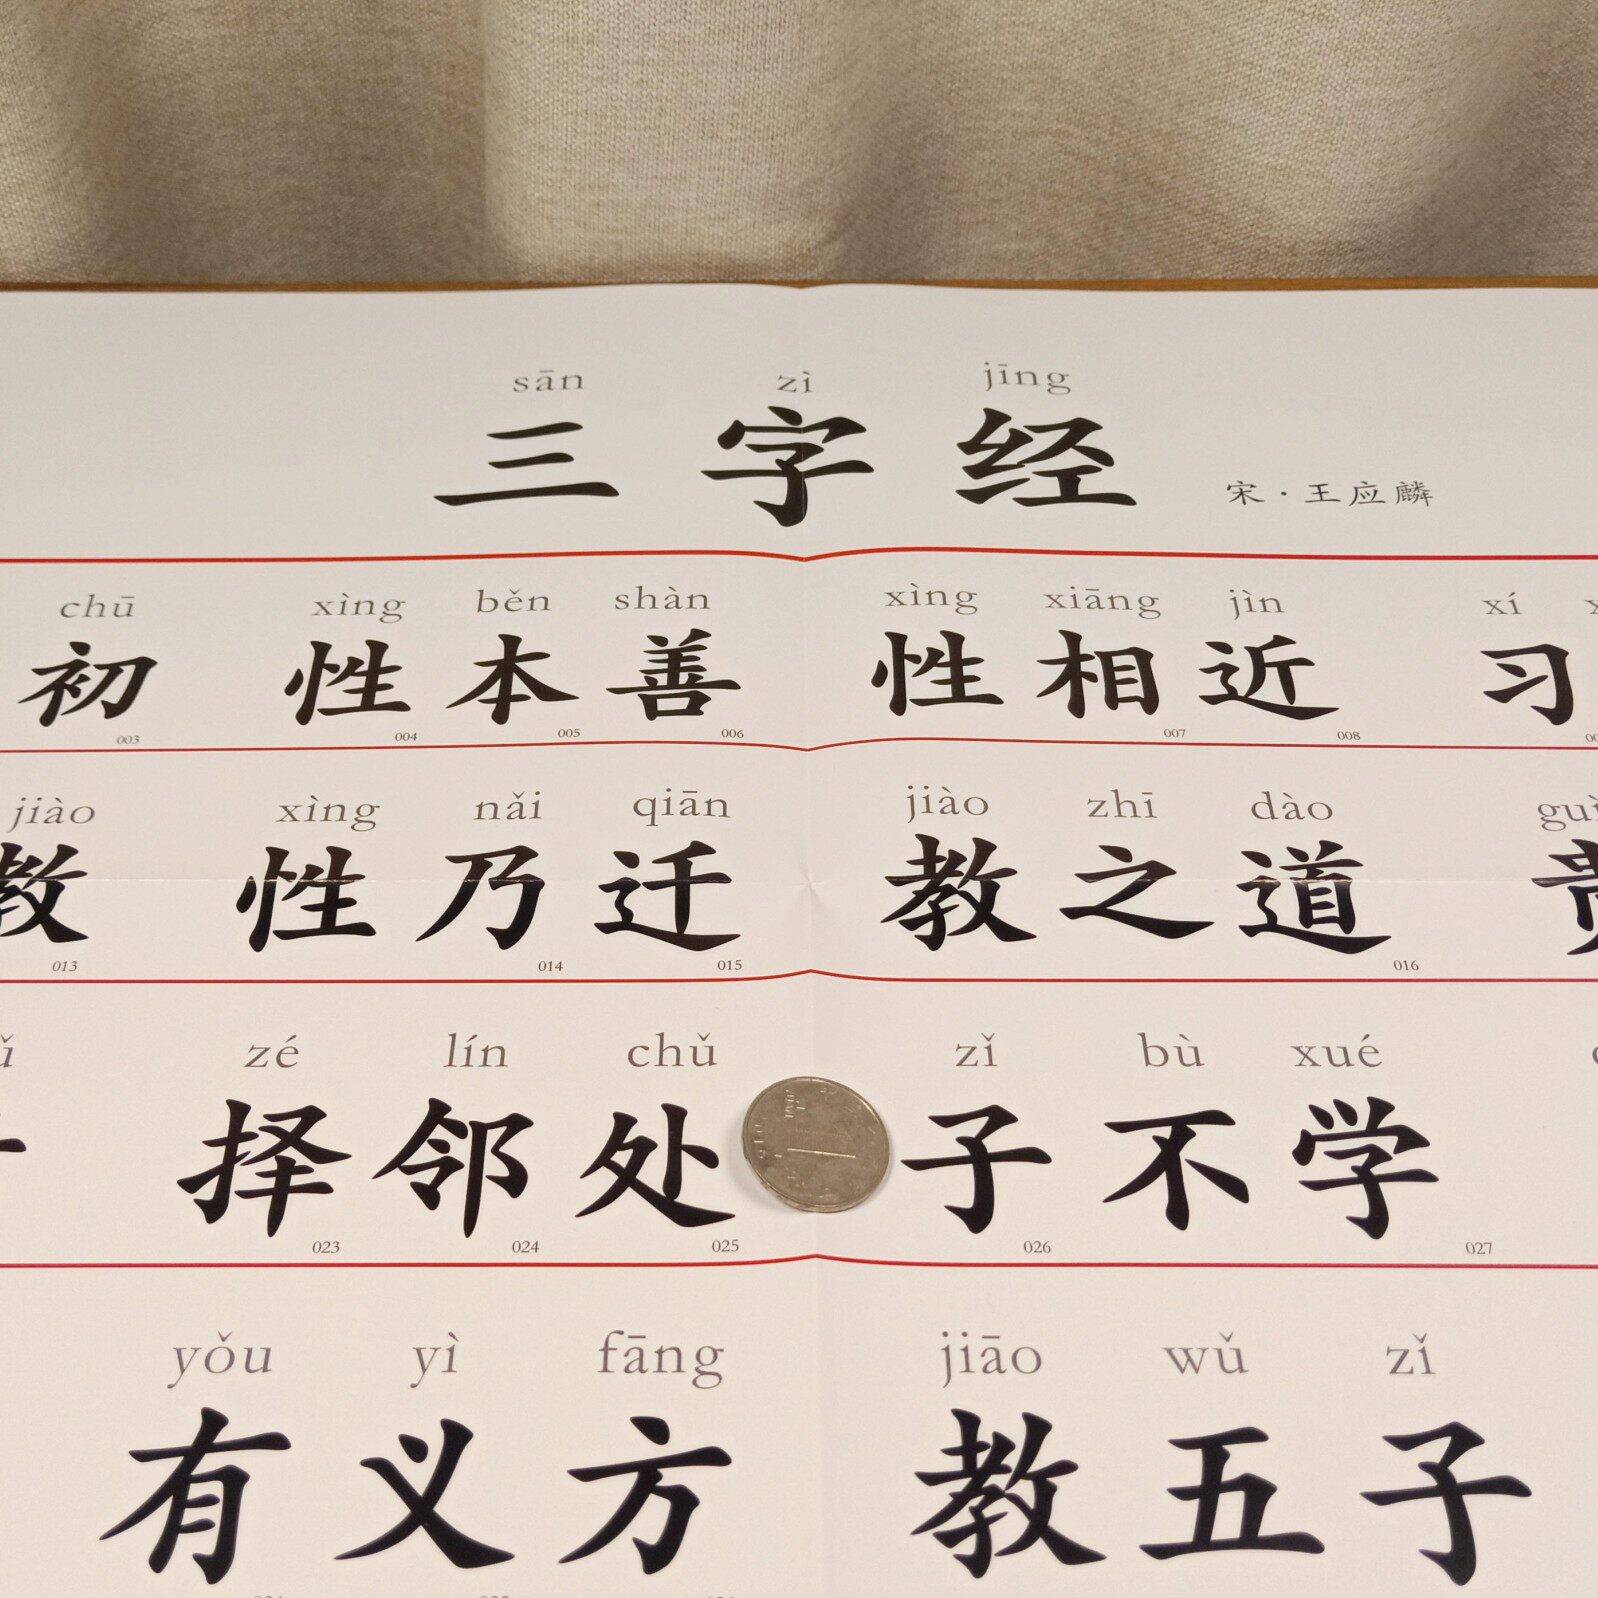 sān zì jīng
三字经 宋·王应麟
chū xìng běn shàn xìng xiāng jìn xí
初 性本善 性相近 习
003 004 005 006 007 008
jiào xìng nǎi qiān jiào zhī dào
教 性乃迁 教之道 贵
013 014 015 016
zé lín chǔ zǐ bù xué
择邻处 子不学
023 024 025 026 027
yǒu yì fāng jiāo wǔ zǐ
有义方 教五子